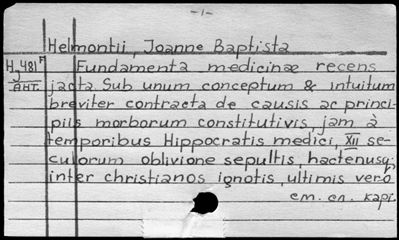 -1-
Helmontii, Joanne Baptista
H 481 Fundamenta medicinæ recens
ант. jacta Sub unum conceptum & intuitum
breviter contracta de causis ac princi-
piis morborum constitutivis, jam à
temporibus Hippocratis medici, XII se-
culorum oblivione sepultis, hactenusq;
inter christianos ignotis, ultimis verò
см. сл. карт.